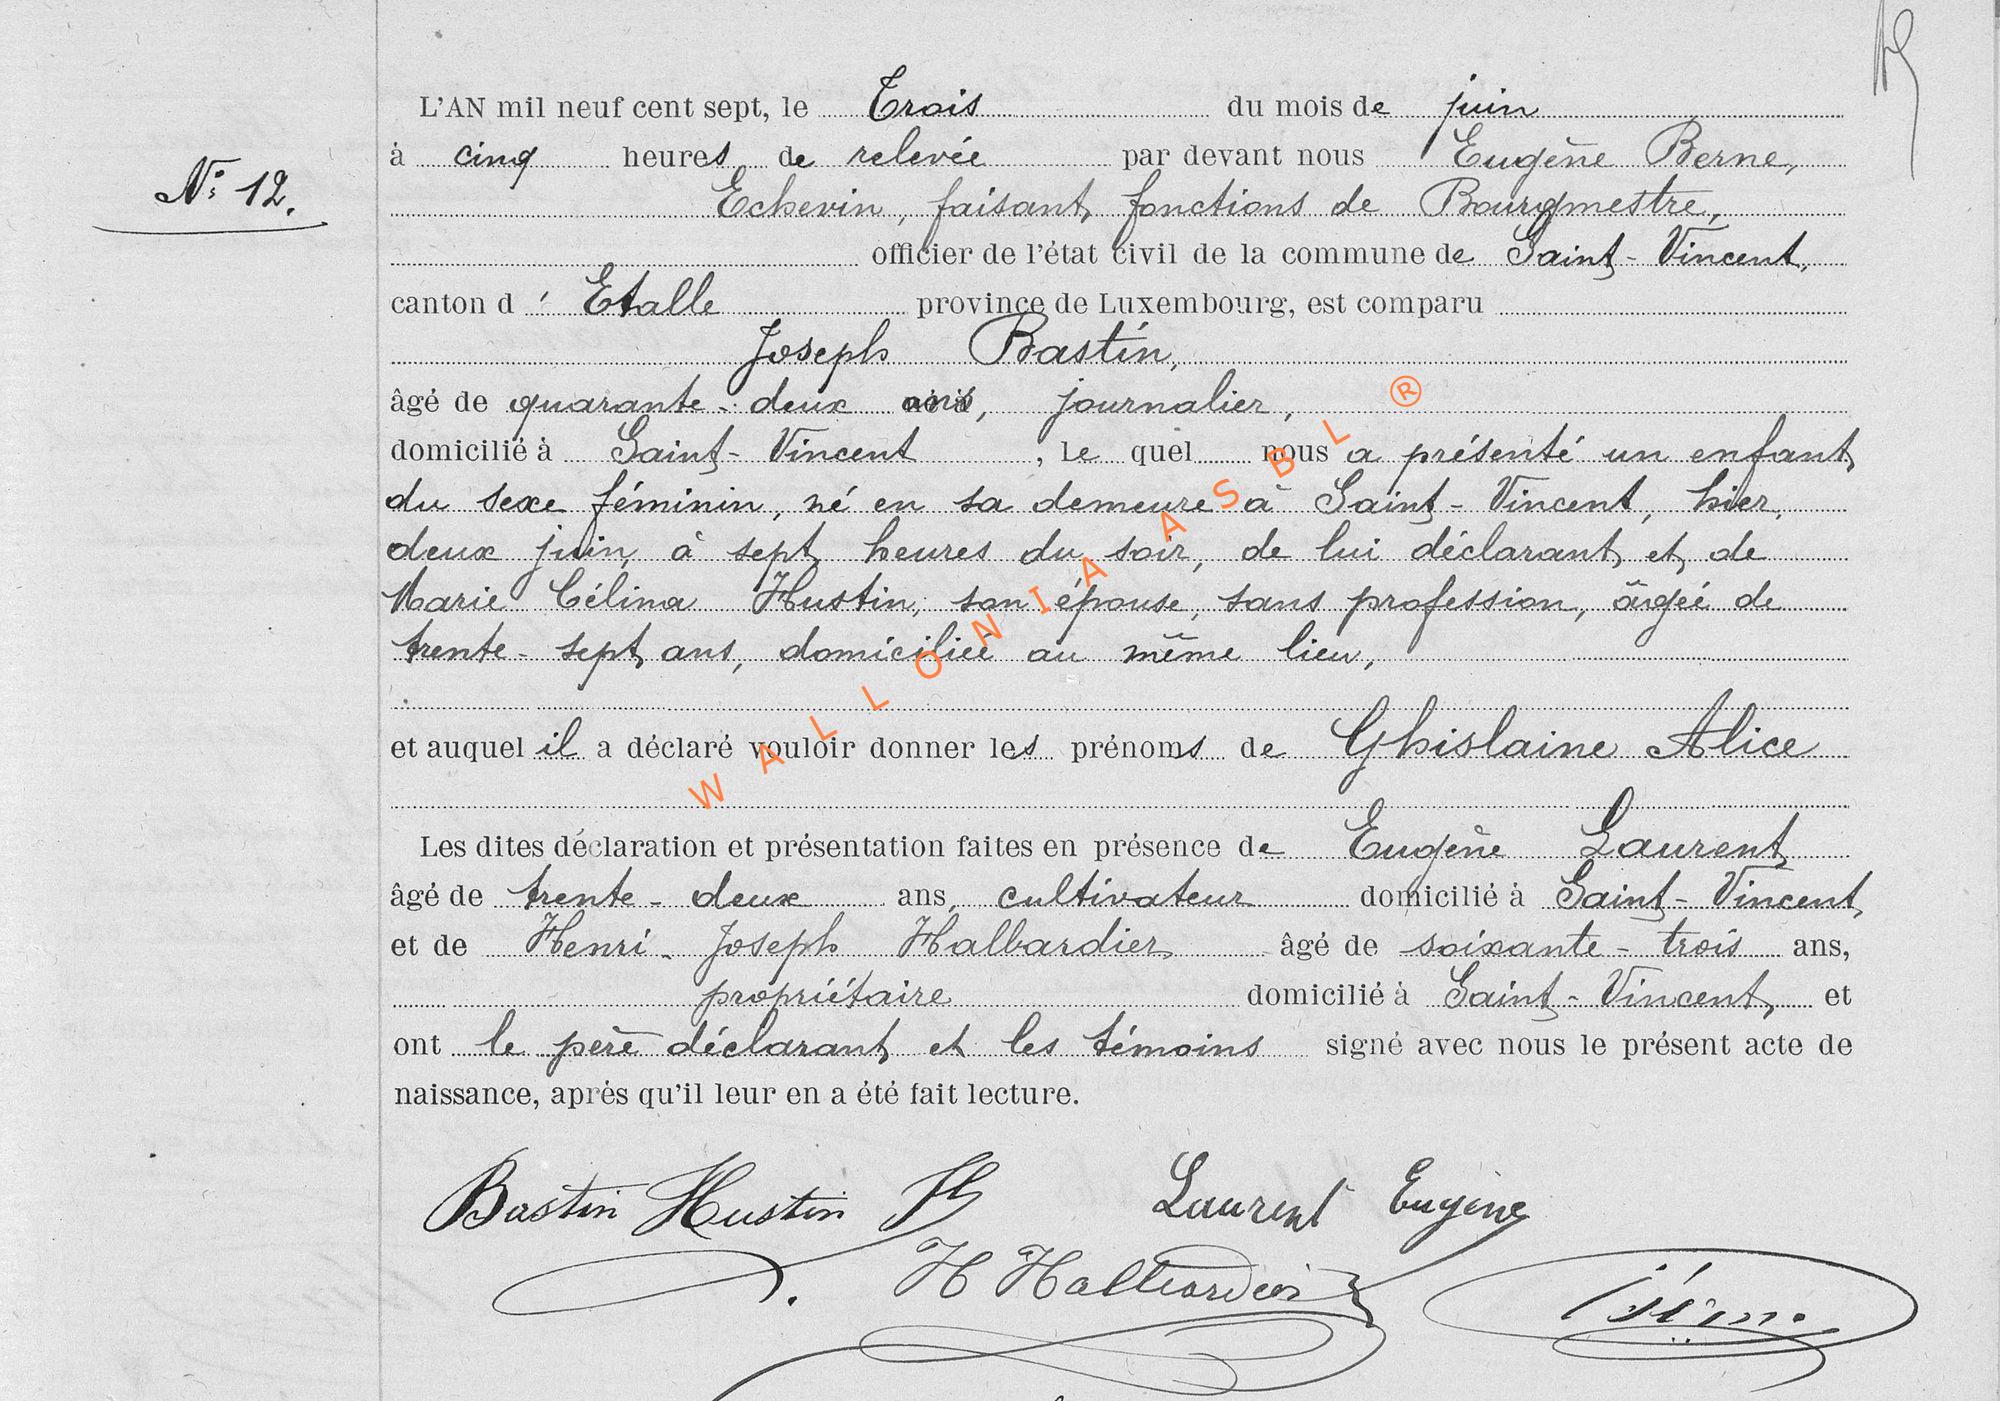 L'AN mil neuf cent sept, le Trois du mois de juin
à cinq heures de relevée par devant nous Eugène Berne,
N° 12.
Echevin, faisant fonctions de Bourgmestre,
officier de l'état civil de la commune de Saint-Vincent,
canton d'Etalle province de Luxembourg, est comparu
Joseph Bastin,
âgé de quarante-deux ans, journalier,
domicilié à Saint-Vincent, le quel nous a présenté un enfant
du sexe féminin, né en sa demeure à Saint-Vincent, hier,
deux juin, à sept heures du soir, de lui déclarant et de
Marie Célina Hustin, son épouse, sans profession, âgée de
trente-sept ans, domiciliée au même lieu,
et auquel il a déclaré vouloir donner les prénoms de Ghislaine Alice
Les dites déclaration et présentation faites en présence de Eugène Laurent
âgé de trente-deux ans, cultivateur domicilié à Saint-Vincent,
et de Henri-Joseph Halbardier âgé de soixante-trois ans,
propriétaire domicilié à Saint-Vincent, et
ont le père déclarant et les témoins signé avec nous le présent acte de
naissance, après qu'il leur en a été fait lecture.
Bastin Hustin Laurent Eugène
H Halbardier
WALLONIA ASBL ®